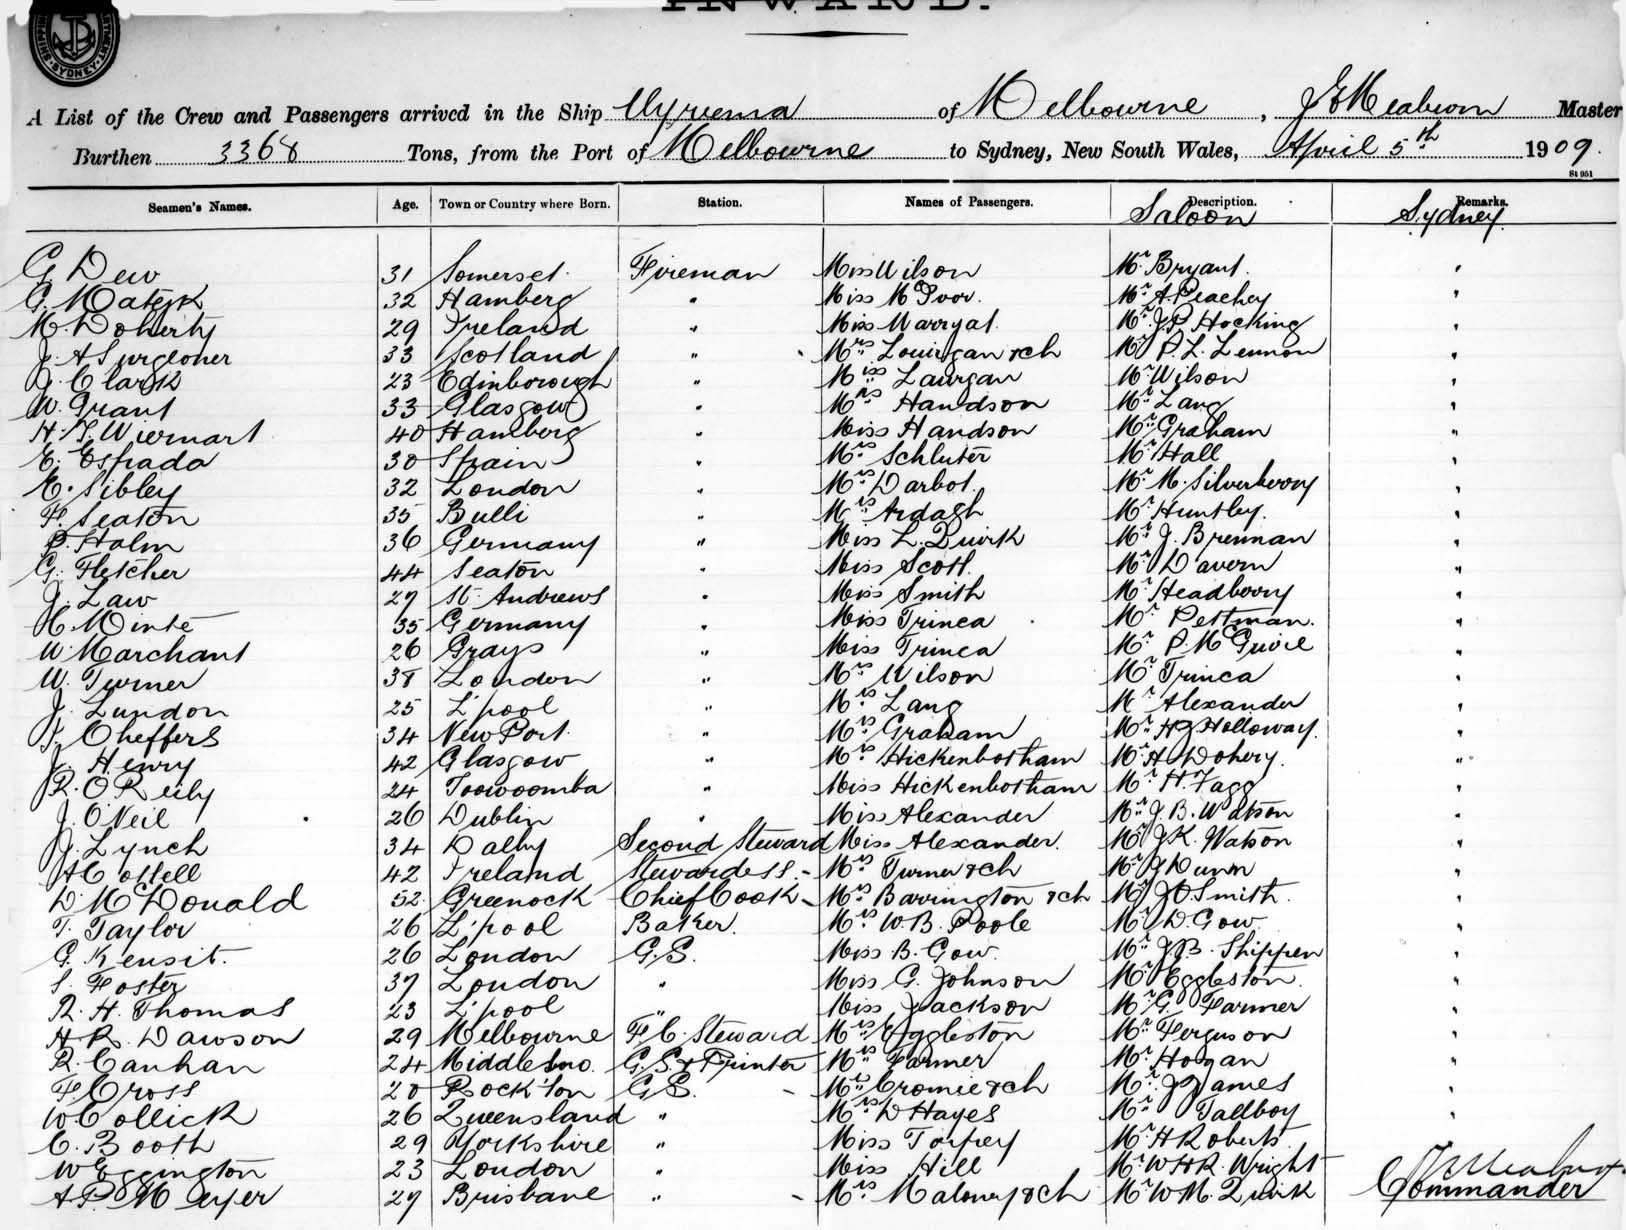 INWARD.
SYDNEY
A List of the Crew and Passengers arrived in the Ship Wyreema of Melbourne, Master
Burthen 3368 Tons, from the Port of Melbourne to Sydney, New South Wales, April 5th 1909.
St 951
Seamen's Names. Age. Town or Country where Born. Station. Names of Passengers. Description. Remarks.
Saloon Sydney
G Dew 31 Somerset. Fireman Miss Wilson Mr. Bryant. "
G. Matejk 32 Hamberg " Miss McIvor. Mr. A Peachey "
M. Doherty 29 Ireland " Miss Marryat. Mr. J.P. Hocking "
J. A Surgeoner 33 Scotland " Mrs Lourigan & ch Mr P. L. Lennon "
J. Clark 23 Edinborough " Miss Laurgan Mr Wilson "
W. Grant 33 Glasgow " Mrs Handson Mr. Lang "
H. Wiemart 40 Hamberg " Miss Handson Mr. Graham "
E. Espada 30 Spain " Mrs Schluter Mr Hall "
E. Sibley 32 London " Mrs Darbot. Mr. M. Silverberry "
F. Seaton 35 Bulli " Mrs Ardagh Mr Huntley. "
P. Holm 36 Germany " Miss L. Quirk Mr J. Brennan "
G. Fletcher 44 Seaton " Miss Scott. Mr Davern "
J. Law 27 St Andrews " Miss Smith Mr Headberry "
H. Minte 35 Germany " Miss Trinca Mr. Pettman. "
W. Marchant 26 Grays " Miss Trinca Mr. P. McGuire "
W. Turner 38 London " Mrs Wilson Mr Trinca "
J. Lundon 25 L'pool " Mrs Lang Mr Alexander "
F. Cheffers 34 New Port. " Mrs Graham Mr. H J Holloway. "
J. Henry 42 Glasgow " Mrs Hickenbotham Mr. H Dohery. "
R. O Reily 24 Toowoomba " Miss Hickenbotham Mr. H. Fagg "
J. O'Neil 26 Dublin " Miss Alexander Mr. J. B. Watson "
J. Lynch 34 Dalby Second Steward Miss Alexander. Mr J.K. Watson "
H Cottell 42 Ireland Stewardess. Mrs Turner & ch Mr J Dunn "
D. McDonald 52 Greenock Chief Cook Mrs Barrington & ch Mr J O Smith. "
T. Taylor 26 L'pool Baker. Mrs W. B. Poole Mr D. Gow. "
G. Kensit. 26 London G.S. Miss B. Gow. Mr. J.B. Shippen "
S. Foster 37 London " Miss G. Johnson Mr Eggleston. "
R. H. Thomas 23 L'pool " Miss Jackson Mr G. Farmer "
H R. Dawson 29 Melbourne F. C. Steward Mrs Eggleston Mr. Ferguson "
R. Canhan 24 Middlesbro. G.S. & Printer Mrs Farmer Mr. Hogan "
F. Cross 20 Rock'ton G.S. Mrs Cromie & ch Mr. J James "
W Collick 26 Queensland " Mrs D Hayes Mr Tallboy "
C. Booth 29 Yorkshire " Miss Torpey Mr. H Roberts.
W Eggington 23 London " Miss Hill Mr. W H R. Wright
A. P. Meyer 27 Brisbane " Mrs Maloney & ch Mr W M. Quirk
Commander